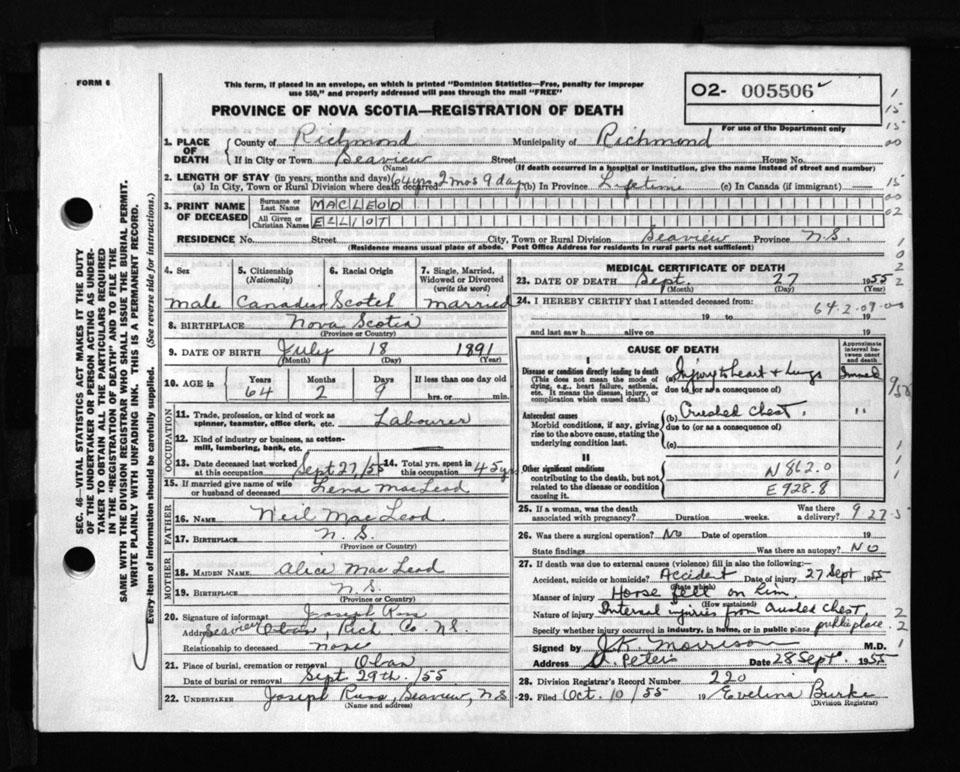 FORM 6
This form, if placed in an envelope, on which is printed "Dominion Statistics—Free, penalty for improper
use $50," and properly addressed will pass through the mail "FREE"
O2- 005506
PROVINCE OF NOVA SCOTIA—REGISTRATION OF DEATH
For use of the Department only
1. PLACE OF DEATH County of Richmond Municipality of Richmond
If in City or Town Seaview Street House No.
(Name) (If death occurred in a hospital or institution, give the name instead of street and number)
2. LENGTH OF STAY (in years, months and days)
(a) In City, Town or Rural Division where death occurred 64 yrs 2 mos 9 days (b) In Province Lifetime (c) In Canada (if immigrant)
3. PRINT NAME OF DECEASED Surname or Last Name MACLEOD
All Given or Christian Names ELLIOT
RESIDENCE No. Street City, Town or Rural Division Seaview Province N.S.
(Residence means usual place of abode. Post Office Address for residents in rural parts not sufficient)
4. Sex male
5. Citizenship (Nationality) Canadian
6. Racial Origin Scotch
7. Single, Married, Widowed or Divorced (write the word) married
8. BIRTHPLACE Nova Scotia
(Province or Country)
9. DATE OF BIRTH July 18 1891
(Month) (Day) (Year)
10. AGE in Years 64 Months 2 Days 9 If less than one day old hrs. or min.
OCCUPATION
11. Trade, profession, or kind of work as spinner, teamster, office clerk, etc. Labourer
12. Kind of industry or business, as cotton-mill, lumbering, bank, etc.
13. Date deceased last worked at this occupation Sept 27/55 14. Total yrs. spent in this occupation 45 yrs
15. If married give name of wife or husband of deceased Lena MacLeod
FATHER
16. NAME Neil MacLeod.
17. BIRTHPLACE N.S.
(Province or Country)
MOTHER
18. MAIDEN NAME Alice MacLeod
19. BIRTHPLACE N.S.
(Province or Country)
20. Signature of informant Joseph Ross
Address Seaview Oban, Rich. Co. N.S.
Relationship to deceased none
21. Place of burial, cremation or removal Oban
Date of burial or removal Sept. 29th. /55
22. UNDERTAKER Joseph Ross, Seaview, N.S
(Name and address)
MEDICAL CERTIFICATE OF DEATH
23. DATE OF DEATH Sept. 27 1955
(Month) (Day) (Year)
24. I HEREBY CERTIFY that I attended deceased from:
64-2-09-00
19 to 19
and last saw h alive on 19
CAUSE OF DEATH
Approximate interval between onset and death
I
Disease or condition directly leading to death (a) Injury to heart & lungs
(This does not mean the mode of dying, e.g., heart failure, asthenia, etc. It means the disease, injury, or complication which caused death.) due to (or as a consequence of)
Antecedent causes (b) Crushed chest. "
Morbid conditions, if any, giving rise to the above cause, stating the underlying condition last. due to (or as a consequence of)
(c)
II
Other significant conditions contributing to the death, but not related to the disease or condition causing it. N862.0
E928.8
25. If a woman, was the death associated with pregnancy? Duration weeks. Was there a delivery?
26. Was there a surgical operation? No Date of operation 19
State findings Was there an autopsy? No
27. If death was due to external causes (violence) fill in also the following:—
Accident, suicide or homicide? Accident Date of injury 27 Sept 1955
(State which)
Manner of injury Horse fell on him.
(How sustained)
Nature of injury Internal injuries from crushed chest.
Specify whether injury occurred in industry, in home, or in public place public place.
Signed by J.K. Morrison M.D.
Address St. Peters Date 28 Sept. 1955
28. Division Registrar's Record Number 220
29. Filed Oct. 10/55 19 Evelina Burke
(Division Registrar)
SEC. 46—VITAL STATISTICS ACT MAKES IT THE DUTY
OF THE UNDERTAKER OR PERSON ACTING AS UNDER-
TAKER TO OBTAIN ALL THE PARTICULARS REQUIRED
IN THE "REGISTRATION OF DEATH" AND TO FILE THE
SAME WITH THE DIVISION REGISTRAR WHO SHALL ISSUE THE BURIAL PERMIT.
WRITE PLAINLY WITH UNFADING INK. THIS IS A PERMANENT RECORD.
Every item of information should be carefully supplied. (See reverse side for instructions.)